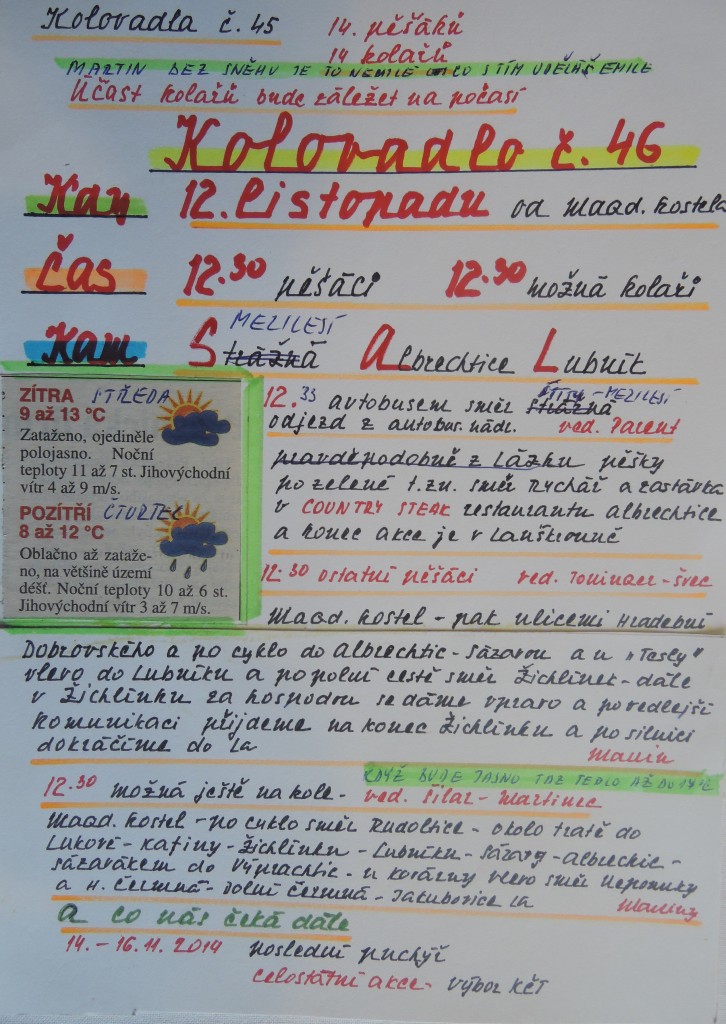 Kolovadla č. 45 14. pěšáků
14 kolařů
MARTIN BEZ SNĚHU JE TO NEMILÉ CO S TÍM UDĚLÁŠ EMILE
Účast kolařů bude záležet na počasí
Kolovadlo č. 46
Kdy 12. listopadu od Maad. kostela
Čas 12.30 pěšáci 12.30 možná kolaři
MEZILESÍ
Kam Strážná Albrechtice Lubník
ZÍTRA STŘEDA
9 až 13 °C
Zataženo, ojediněle
polojasno. Noční
teploty 11 až 7 st. Jihovýchodní
vítr 4 až 9 m/s.
POZÍTŘÍ ČTVRTEK
8 až 12 °C
Oblačno až zataže-
no, na většině území
déšť. Noční teploty 10 až 6 st.
Jihovýchodní vítr 3 až 7 m/s.
ŠTÍTY - MEZILESÍ
12.33 autobusem směr Strážná
odjezd z autobus. nádr. ved. Parent
pravděpodobně z Lázku pěšky
po zelené t.zn. směr Rychář a zastávka
v COUNTRY STEAK restaurantu Albrechtice
a konec akce je v Lanškrouně
12.30 ostatní pěšáci ved. - Švec
Maad. kostel - pak ulicemi Hradební
Dobrovského a po cyklo do Albrechtic - Sázavou a u "Tesly"
vlevo do Lubníku a po polní cestě směr Žichlínek - dále
v Žichlínku za hospodou se dáme vpravo a po vedlejší
komunikaci přijdeme na konec Žichlínku a po silnici
dokráčíme do La
KDYŽ BUDE JASNO TAK TEPLO AŽ DO
12.30 možná ještě na kole - ved. Šilar - Martinec
Maad. kostel - po cyklo směr Rudoltice - okolo tratě do
Lukové - Žichlínku - Lubníku - Sázavy - Albrechtic -
Sázavákem do Výprachtic - u kovárny vlevo směr Nepomuky
a H. Čermná - Dolní Čermná - Jakubovice La
a co nás čeká dále
14. - 16.11. 2014 poslední puchýř
celostátní akce - výbor KČT